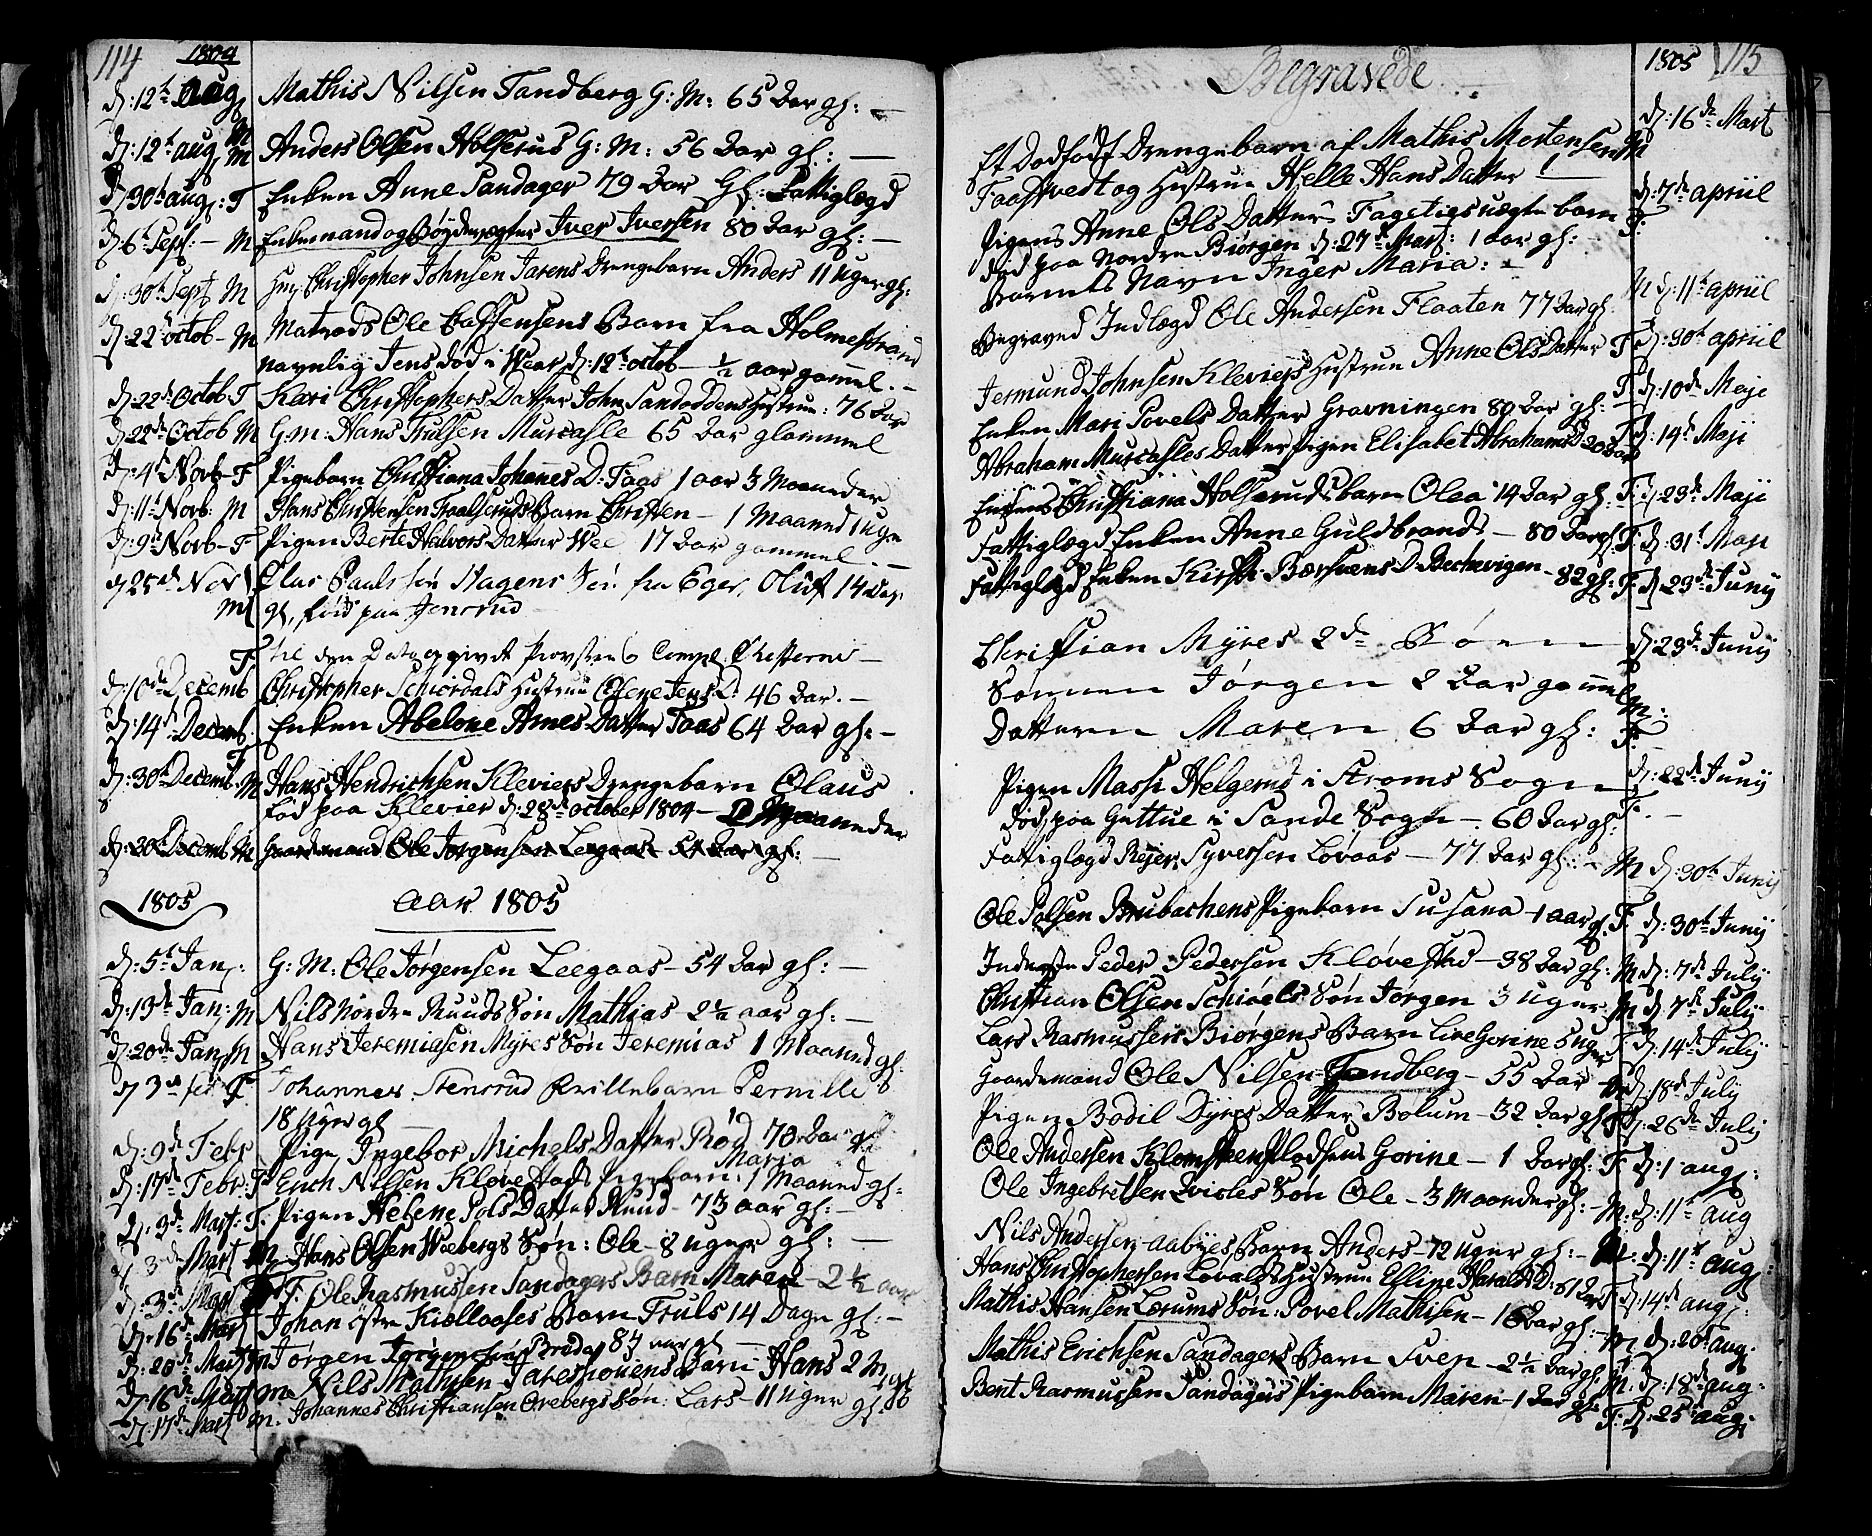 114 1804
d: 12t aug M Mathis Nilsen Sandberg G: M: 65 Aar gl: —
d: 12t aug M Anders Olsen Holserus G: M: 56 Aar gl: —
d 30t aug: F Enken Anne Sandager 79 Aar gl: Fattiglægd
d: 6t Sept: — M Enkemand og Bøyderægter Iver Iversen 80 Aar gl: —
d: 30t Sept M Huus: Christopher Johnsen Jarens Drengebarn Anders 11 Uger gl:
d: 22d octob — M Matros Ole Bassensens Barn fra Holmestrand
navnlig Jens død i Wear d: 12t octob — ½ aar gammel. —
d: 22d Octob F Kari Christophers Datter John Sandoddens Hustrue: 76 Aar
d: 22d Octob M G: M: Hans Trulsen Murcasle 65 Aar glammel
d: 4t Novb — F Pigebarn Christiana Johannes D: Faas 1 aar 3 Maaneder
d: 11t Novb: M Hans Christensen Traalseruds Barn Christen — 1 Maaned 1 uge
d: 9d Novb — F Pigen Berte Halvors Datter Wee 17 Aar gammel. —
d 25d Nov M Olas Paulssøn Hagens Søn fra Eger, Oluf 14 Dage
gl, død paa Jensrud
til den Dato opgivet Provsten Compl. Christerne —
d: 10de Decemb F Christopher Schiordals Hustrue Olene Jens D: 46 Aar. —
d: 14d Decemb. F Enken Abelone Arnes Datter Faas 64 Aar gl: —
d: 30t Decemb. M Hans Hendrichsen Kleviers Drengebarn Olaus
fød paa Klevier d: 28de october 1804 — 2 Maaneder
d: 30 Decemb M Gaardemand Ole Jørgensen Leegaas 54 Aar gl: —
1805 aar 1805
d: 5t Jan: G: M: Ole Jørgensen Leegaas — 54 Aar gl: —
d: 13de Jan: M Nils Nordre Ruuds Søn Mathias 2½ aar gl: —
d: 20de Jan M Hans Jeremiasen Myres Søn Jeremias 1 Maaned gl:
d 3d feb F Johannes Stensrud Qvillebarn Pernille
18 Uger gl —
d: 9d Febr Pigen Ingebor Michels Datter Rød 70 Aar gl
d: 17de Febr: F Erich Nilsen Kløvestads Pigebarn Maria 1 Maaned gl:
d: 3de Mart: F. Pigen Helene Pols Datter Ruud — 73 aar gl: —
d 3de Mart M Hans Olsen Weebergs Søn: Ole 8 uger gl: —
d: 3d Mart F. Ole Rasmussen Sandagers Barn Maren — 2½ aar
d: 16d Mart Johan østre Kiøllaases Barn Truls 14 Dage gl: —
d: 20d Mart M Jørgen Jørgensen Bredal 87 aar gl —
d: 16d Mart M Nils Mathisen Jarestouens Barn — Hans 2 M. gl
d: 17de Mart M. Johannes Christiansen Orebergs Søn: Lars — 11 Uger gl:
Begravede 1805 115
Et Dødfødt Drengebarn af Mathis Mortensen M d: 16de Mart
Faastvedt og Hustrue Helle Hans Datter —
Pigens Anne Ols Datters Fageties uægte barn F. d: 7de apriil
død paa Nordre Biørgen d: 27de Mart: 1 Aar gl:
Barnets Navn Inger Maria: —
Begraved Indlægd Ole Andersen Flaaten 77 Aar gl: M d: 11t apriil
Jermund Johnsen Kleviers Hustrue Anne Ols Datter F d: 30t apriil
Enken Mari Povels Datter Gravningen 80 Aar gl: F d: 10de Maji
Abraham Murcasles Datter Pigen Elisabet Abrahams D 20 Aar F d: 14d Maji
Enkens Christiana Holseruds barn Olea 14 Aar gl: F. d: 23de Maji
Fattiglægd Enken Anne Guldbrands — 80 Aar gl F. d: 31t Maji
Fattiglægd Enken Kirsti Bærsvens D: Bechevigen — 82 gl: F. d: 23de Junij
Christian Myres 2de Børn d: 23de Junij
Sønnen Jørgen 2 Aar gammel M.
Datteren Maren 6 Aar gl: F.
Pigen Massi Helgerud i Strøms Sogn d: 22de Junij
død paa Guttue i Sande Sogn — 60 Aar gl: F. —
Fattiglægd Reyer Syversen Lovaas — 77 Aar gl: — M d: 30t Junij
Ole Polsen Brubachens Pigebarn Susana — 1 aar gl. F. d: 30t Junij
Inderste Peder Pedersen Kløvestad — 38 Aar gl: M d: 7de July
Christian Olsen Schiøels Søn Jørgen 3 uger M d: 7de July
Lars Rasmussens Biørgens Barn Live Gorine 5 uger F d: 14de July
Gaardemand Ole Nilsen Sandberg — 55 Aar M d: 18d July
Pigen Bodil Dyres Datter Bolum — 32 Aar gl F d: 26de July
Ole Andersen Klomsteenplodsens Gorine — 1 Aar gl: F. d: 1 aug:
Ole Ingebretsen Qvisles Søn Ole — 3 Maander gl: — M: d: 11t aug
Nils Andersen Aabyes Barn Anders — 12 uger gl: — M: d: 11t aug
Hans Christophersen Lovalds Hustrue Elline Haralds D: 61 Aar F d: 14de aug:
Mathis Hansen Lærums Søn: Povel Mathisen — 16 Aar gl: M d: 20t aug:
Mathis Erichsen Sandagers Barn Sven — 2½ Aar gl: M. d: 18de aug:
Bent Rasmussen Sandagers Pigebarn Maren — 1 Aar gl F: d: 25t aug: